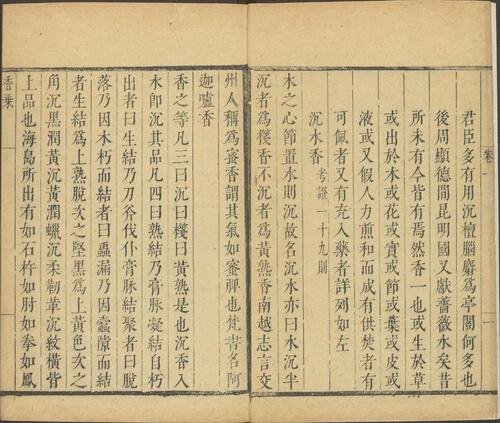 卷一
一
君臣多有用沉檀腦麝爲亭閣何多也
後周顯德間昆明國又獻薔薇水矣昔
所未有今皆有焉然香一也或生於草
或出於木或花或實或節或葉或皮或
液或又假人力煎和而成有供焚者有
可佩者又有充入藥者詳列如左
沉水香 考證一十九則
木之心節置水則沉故名沉水亦曰水沉半
沉者爲棧香不沉者爲黃熟香南越志言交
州人稱爲蜜香謂其氣如蜜脾也梵書名阿
迦嚧香
香之等凡三曰沉曰棧曰黃熟是也沉香入
水卽沉其品凡四曰熟結乃膏脉凝結自朽
出者曰生結乃刀斧伐仆膏脉結聚者曰脫
落乃因木朽而結者曰蟲漏乃因蠹隙而結
者生結爲上熟脫次之堅黑爲上黃色次之
角沉黑潤黃沉黃潤蠟沉柔靭革沉紋橫皆
上品也海島所出有如石杵如肘如拳如鳳
香乘